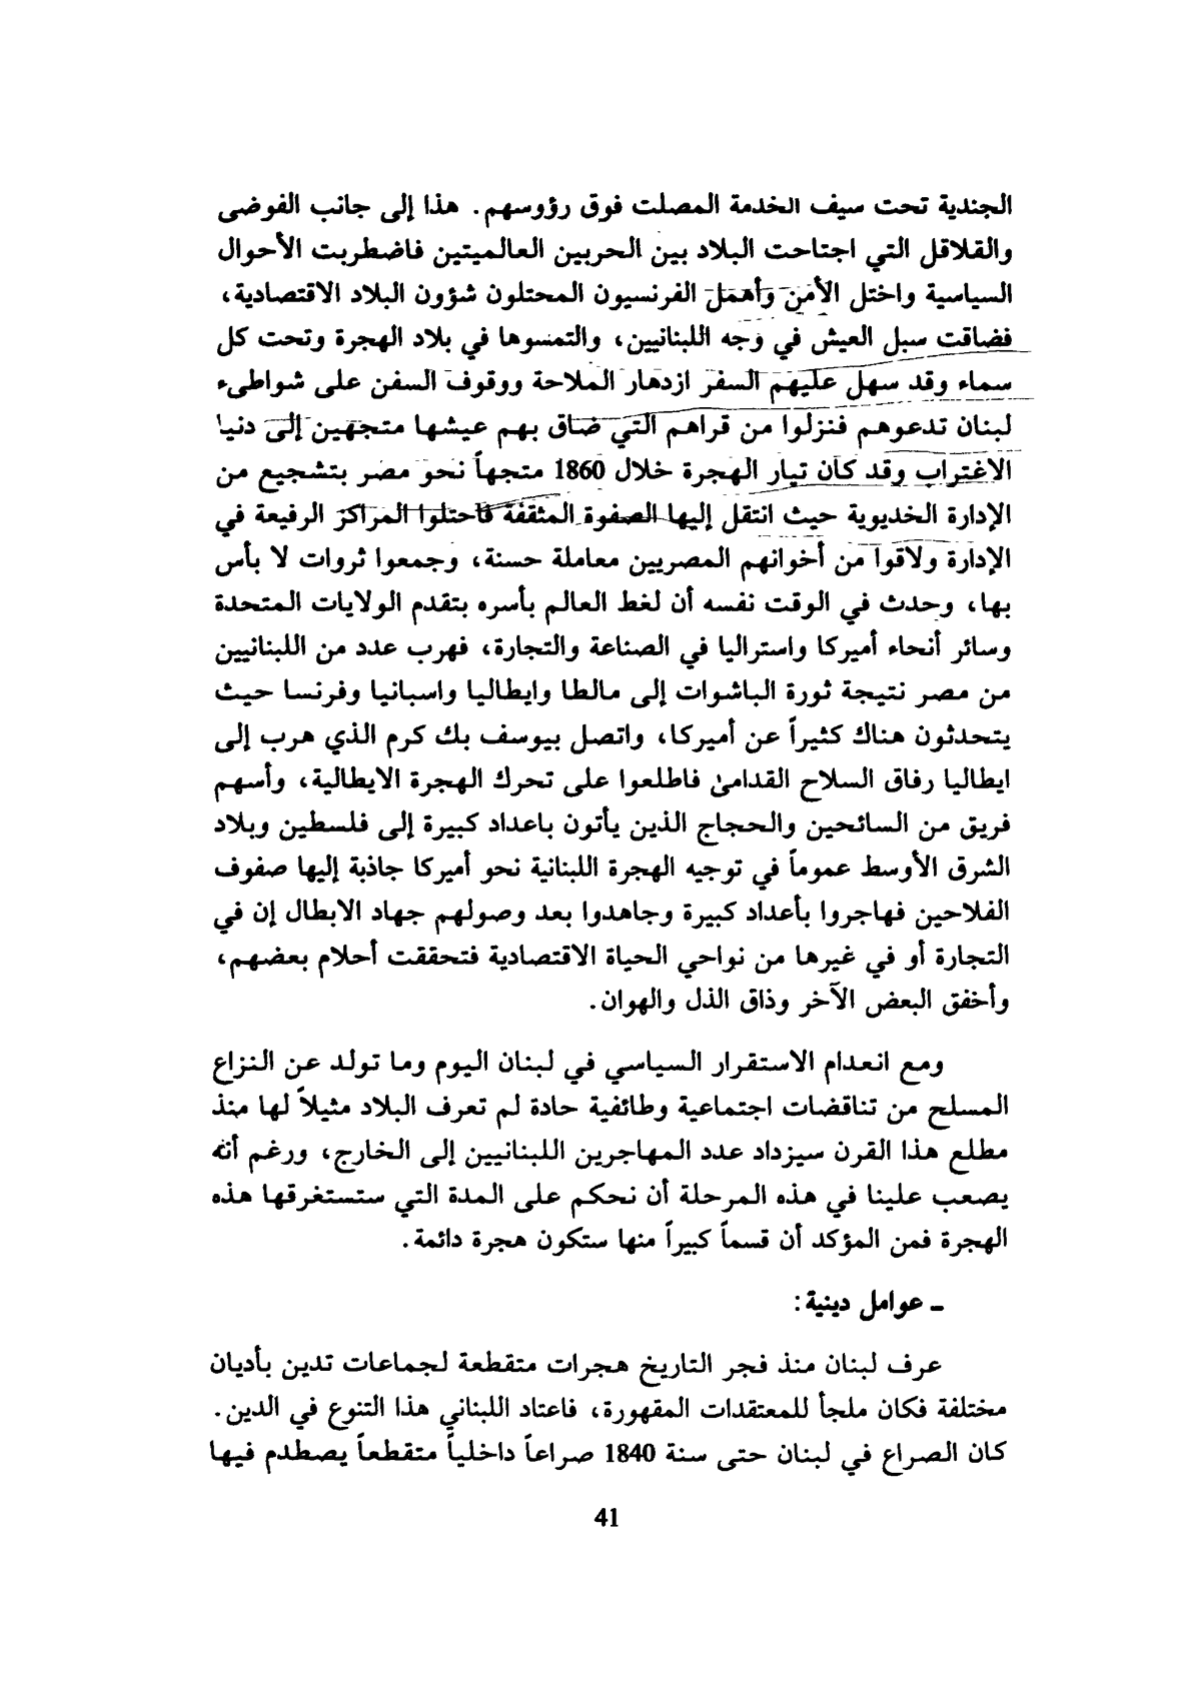 الجندية تحت سيف الخدمة المصلت فوق رؤوسهم. هذا إلى جانب الفوضى
والقلاقل التي اجتاحت البلاد بين الحربين العالميتين فاضطربت الأحوال
السياسية واختل الأمن وأهمل الفرنسيون المحتلون شؤون البلاد الاقتصادية،
فضاقت سبل العيش في وجه اللبنانيين، والتمسوها في بلاد الهجرة وتحت كل
سماء وقد سهل عليهم السفر ازدهار الملاحة ووقوف السفن على شواطىء
لبنان تدعوهم فنزلوا من قراهم التي ضاق بهم عيشها متجهين إلى دنيا
الاغتراب وقد كان تيار الهجرة خلال 1860 متجهاً نحو مصر بتشجيع من
الإدارة الخديوية حيث انتقل إليها الصفوة المثقفة فاحتلوا المراكز الرفيعة في
الإدارة ولاقوا من أخوانهم المصريين معاملة حسنة، وجمعوا ثروات لا بأس
بها، وحدث في الوقت نفسه أن لغط العالم بأسره بتقدم الولايات المتحدة
وسائر أنحاء أميركا واستراليا في الصناعة والتجارة، فهرب عدد من اللبنانيين
من مصر نتيجة ثورة الباشوات إلى مالطا وايطاليا واسبانيا وفرنسا حيث
يتحدثون هناك كثيراً عن أميركا، واتصل بيوسف بك كرم الذي هرب إلى
ايطاليا رفاق السلاح القدامىٰ فاطلعوا على تحرك الهجرة الايطالية، وأسهم
فريق من السائحين والحجاج الذين يأتون باعداد كبيرة إلى فلسطين وبلاد
الشرق الأوسط عموماً في توجيه الهجرة اللبنانية نحو أميركا جاذبة إليها صفوف
الفلاحين فهاجروا بأعداد كبيرة وجاهدوا بعد وصولهم جهاد الابطال إن في
التجارة أو في غيرها من نواحي الحياة الاقتصادية فتحققت أحلام بعضهم،
وأخفق البعض الآخر وذاق الذل والهوان.
ومع انعدام الاستقرار السياسي في لبنان اليوم وما تولد عن النزاع
المسلح من تناقضات اجتماعية وطائفية حادة لم تعرف البلاد مثيلاً لها منذ
مطلع هذا القرن سيزداد عدد المهاجرين اللبنانيين إلى الخارج، ورغم أنه
يصعب علينا في هذه المرحلة أن نحكم على المدة التي ستستغرقها هذه
الهجرة فمن المؤكد أن قسماً كبيراً منها ستكون هجرة دائمة.
ـ عوامل دينية:
عرف لبنان منذ فجر التاريخ هجرات متقطعة لجماعات تدين بأديان
مختلفة فكان ملجأ للمعتقدات المقهورة، فاعتاد اللبناني هذا التنوع في الدين.
كان الصراع في لبنان حتى سنة 1840 صراعاً داخلياً متقطعاً يصطدم فيها
41